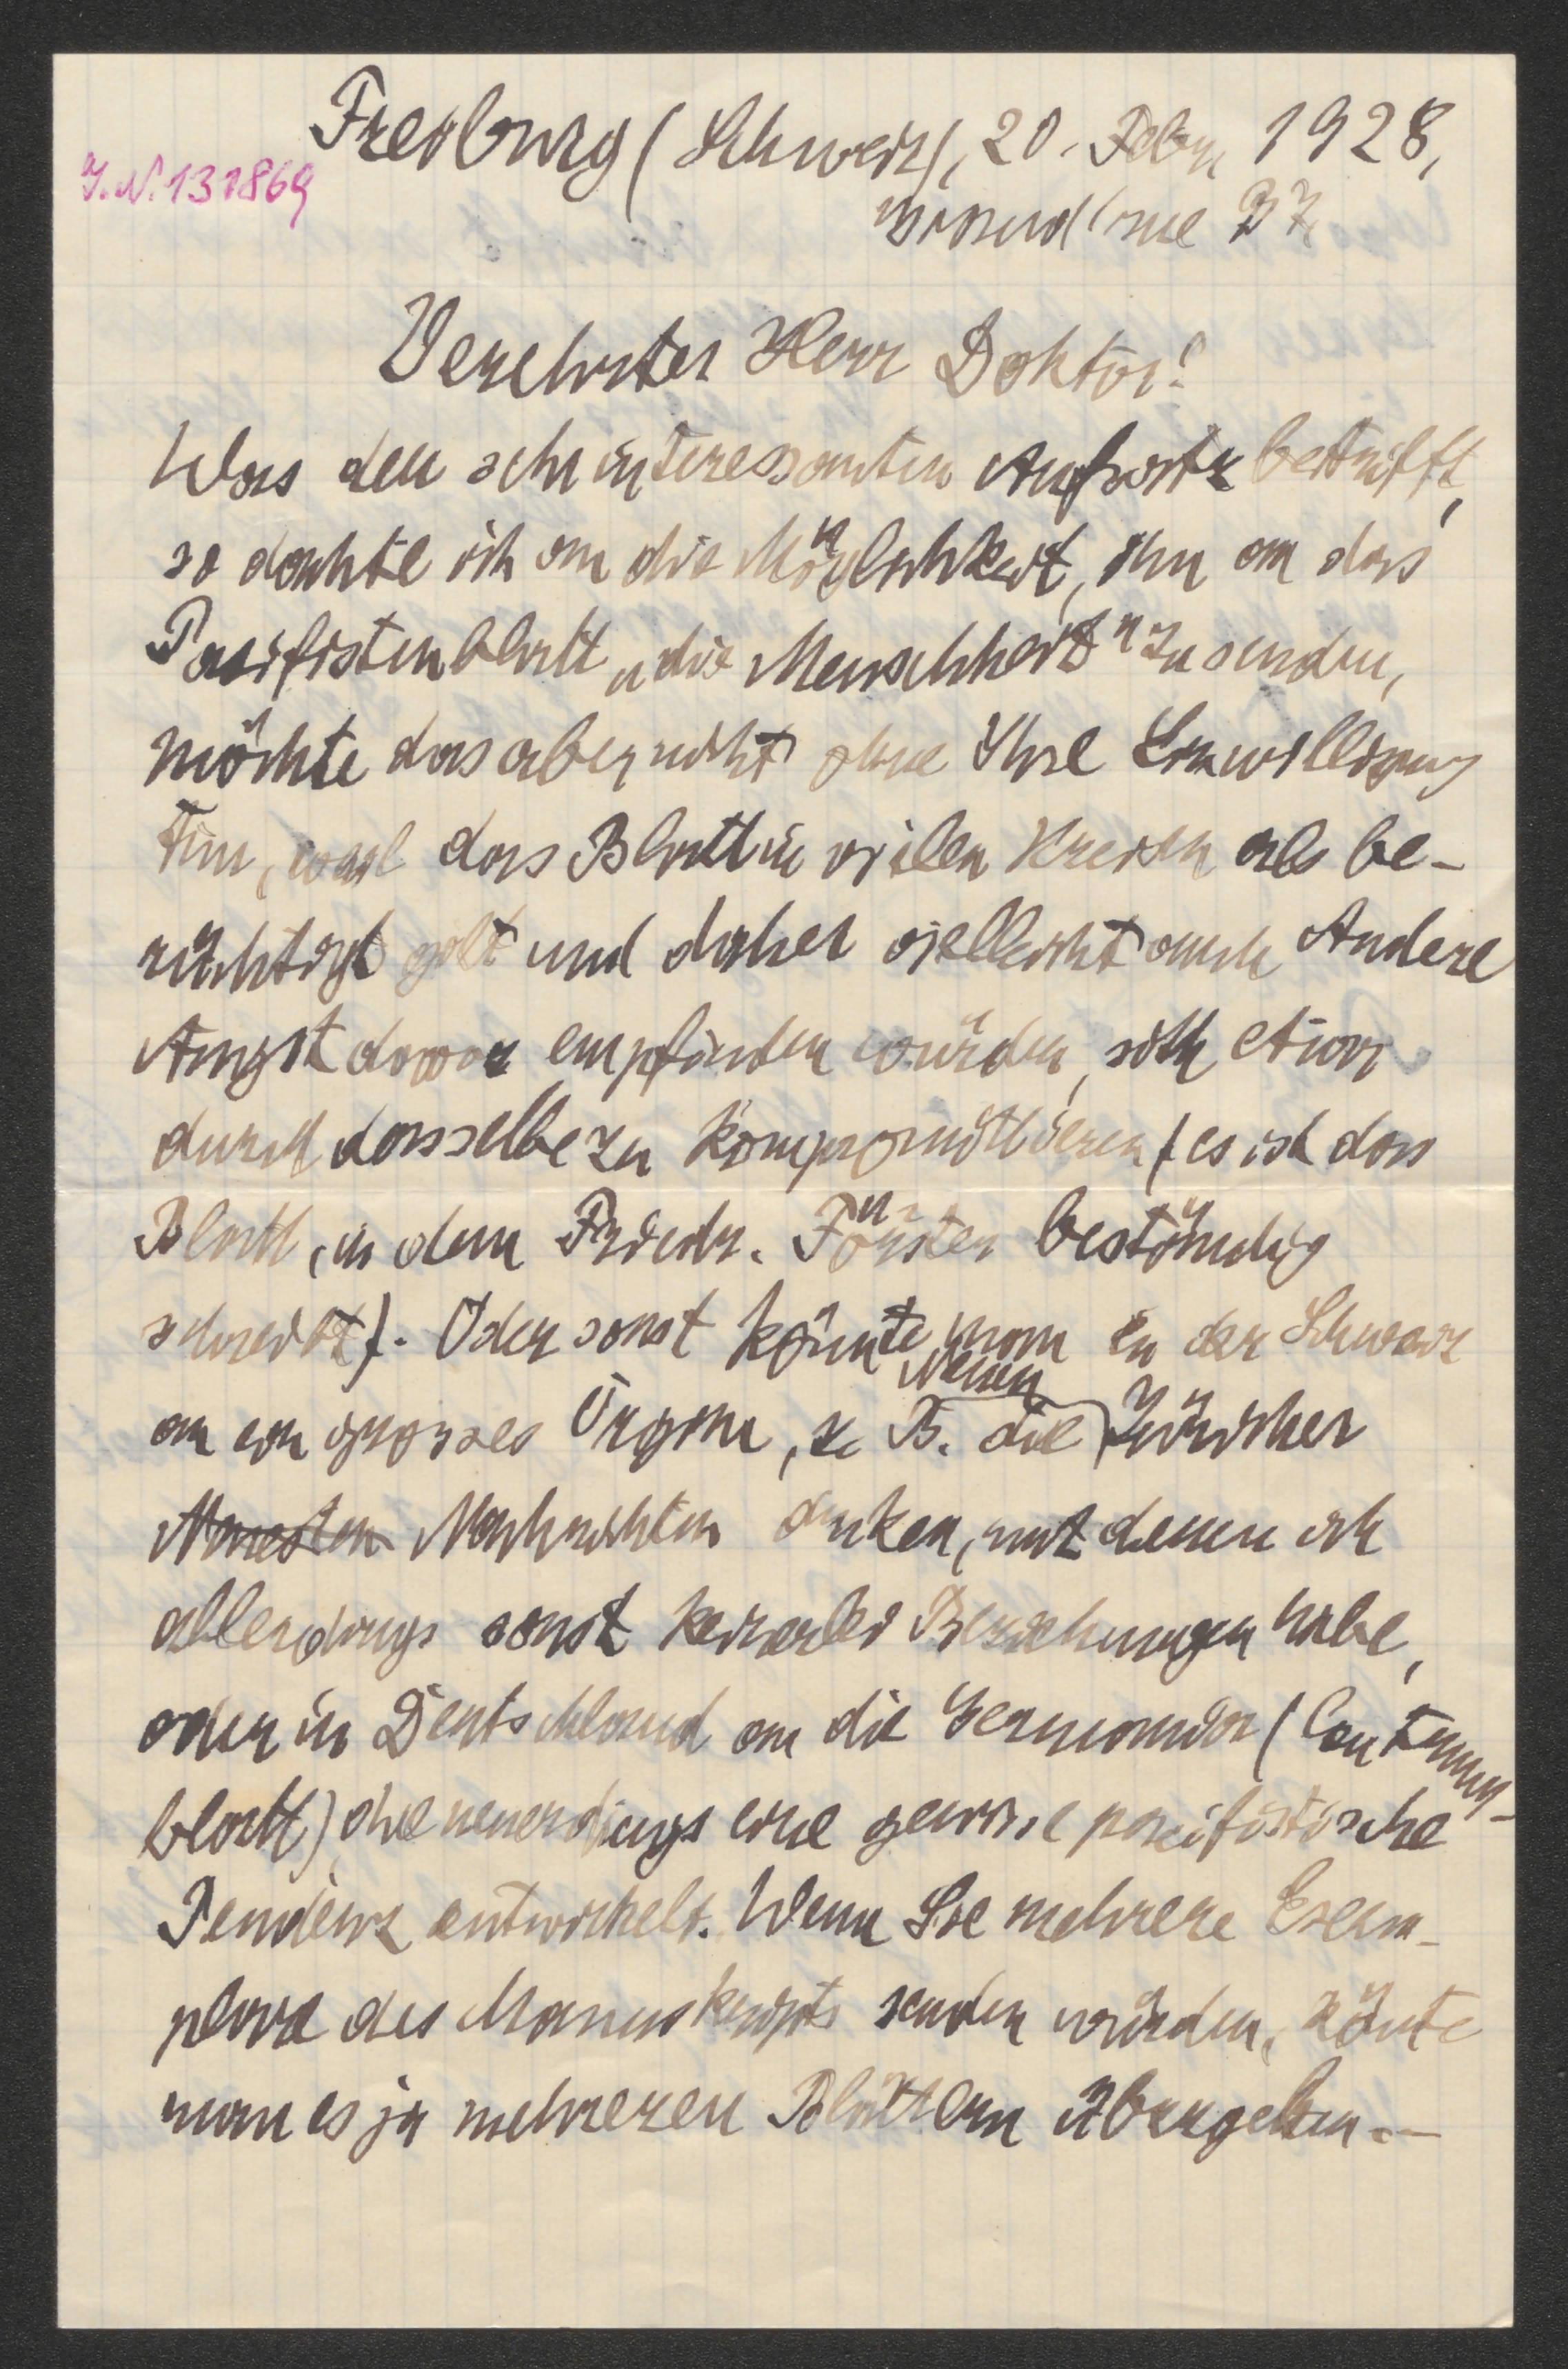 Freiburg (Schweiz), 20. Febr. 1928,
J.N. 131869
rue 37
Verehrter Herr Doktor!
Was den sehr interessanten Aufsatz betrifft,
so dachte ich an die Möglichkeit, ihn an das
Pazifistenblatt „die Menschheit" zu senden,
möchte das aber nicht ohne Ihre Einwilligung
tun, weil das Blatt in vielen Kreisen als be-
rüchtigt gilt und daher vielleicht auch Andere
Angst davor empfinden würden, sich etwa
durch dasselbe zu kompromittieren (es ist das
Blatt, in dem Friedr. Förster beständig
schreibt). Oder sonst könnte man in der Schweiz
an ein grosses Organ, z. B. die Neuen Züricher
Neuesten Nachrichten denken, mit denen ich
allerdings sonst keinerlei Beziehungen habe,
oder in Deutschland an die Germania (Centrums-
blatt), die neuerdings eine gewisse pazifistische
Tendenz entwickelt. Wenn Sie mehrere Exem-
plare des Manuskripts senden würden, könte
man es ja mehreren Blättern übergeben.—